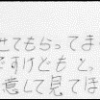 せてもらってま
ですけども と、
意して見てほ